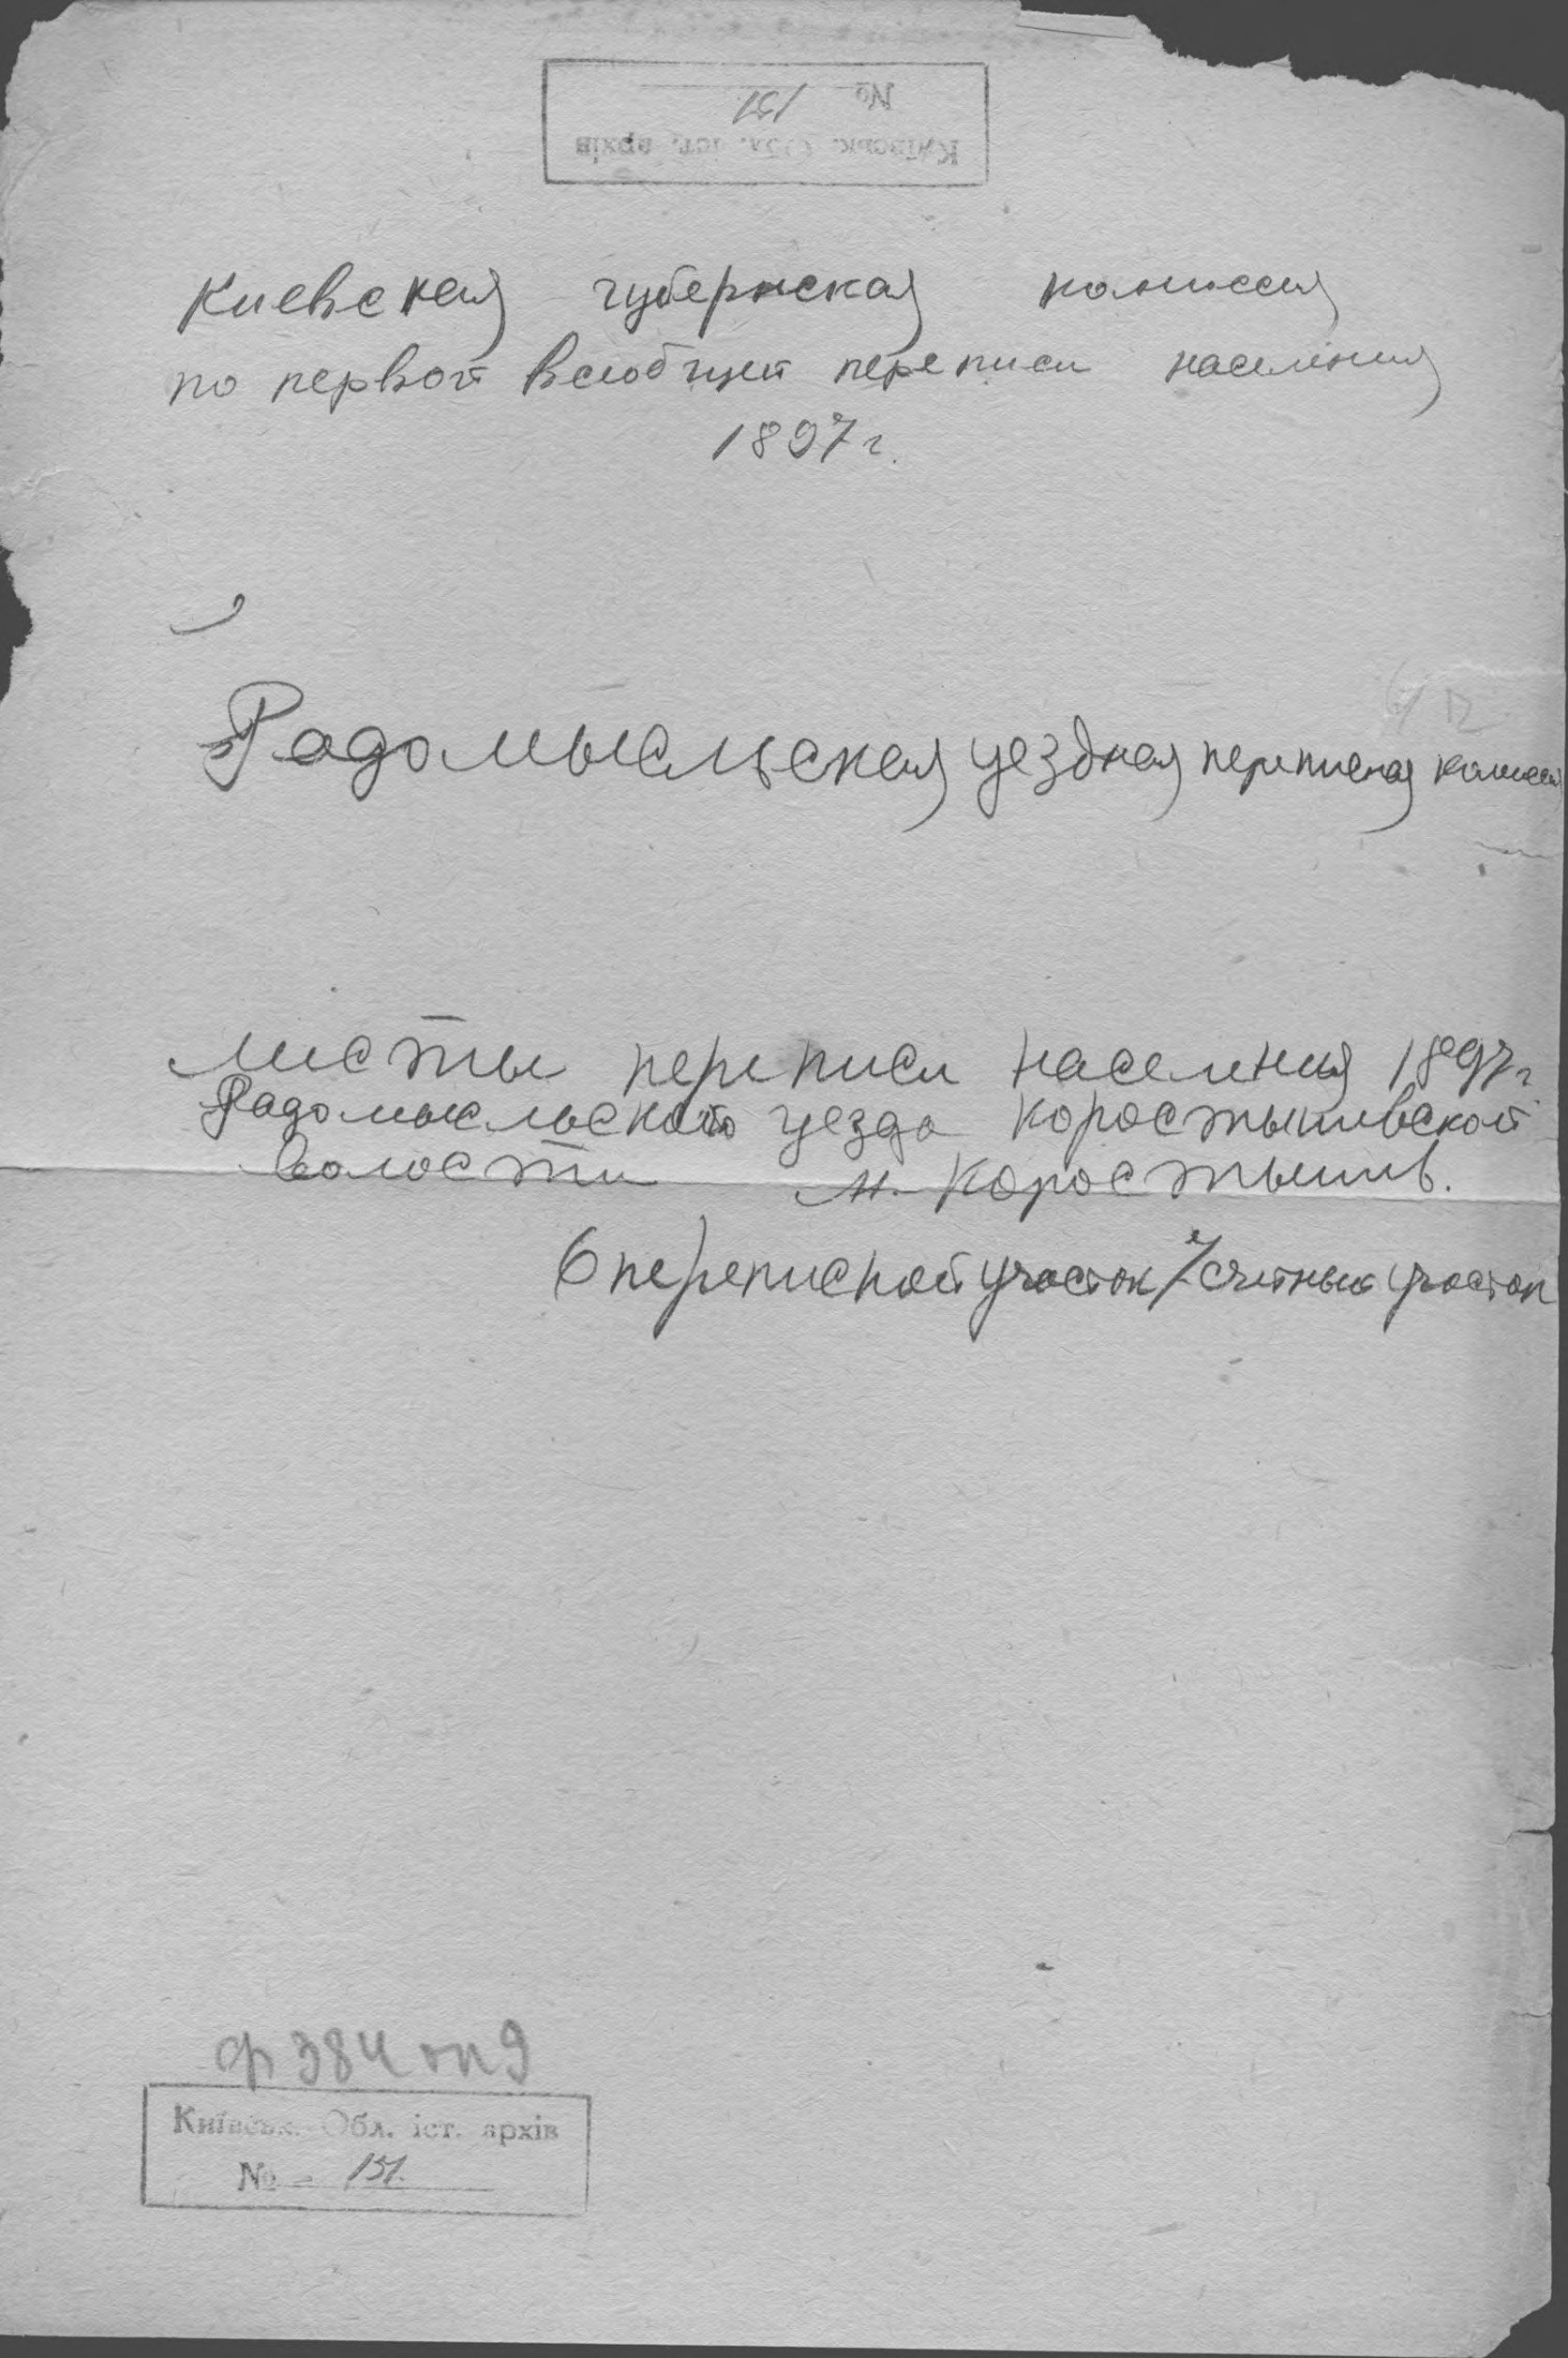 № 151
Київськ. Обл. іст. архів
Киевская губернская комиссия
по первой всеобщей переписи населения
1897 г.
Радомысльская уездная переписная комиссия
Листы переписи населения 1897 г
Радомысльского уезда Коростышевской
волости м. Коростышев.
6 переписной участок 7 счетный участок
ф 384 оп 9
Київськ. Обл. іст. архів
№ - 151.